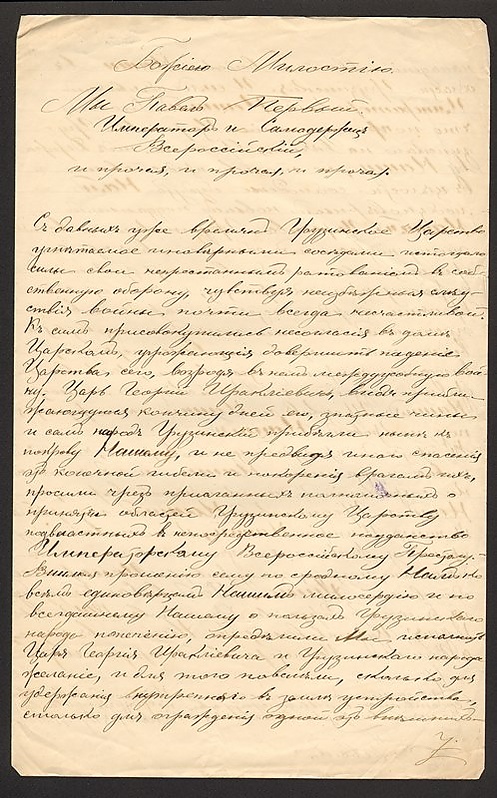 Божіею Милостію
Мы Павелъ Первый
Императоръ и Самодержецъ
Всероссійскій,
и прочая, и прочая, и прочая.
Съ давныхъ уже временъ Грузинское Царство
угнетаемое иновѣрными сосѣдами истощало
силы свои непрестаннымъ ратованіемъ въ соб
ственную оборону, чувствуя неизбѣжныя слѣд
ствія войны почти всегда несчастливой.
Къ симъ присовокупились несогласія въ домѣ
Царскомъ, угрожающія довершить паденіе
Царства сего, возродя въ немъ междуусобную вой
ну. Царь Георгій Иракліевичъ, видя прибли
жающуюся кончину дней его, знатные чины
и самъ народъ Грузинскій прибѣгли нынѣ къ
покрову Нашему, и не предвидя иного спасенія
отъ конечной гибели и покоренія врагамъ ихъ,
просили чрезъ присланныхъ полномочныхъ о
принятіи областей Грузинскому Царству
подвластныхъ въ непосредственное подданство
Императорскому Всероссійскому Престолу.
Внимая прошенію сему по сродному Намъ ко
всѣмъ единовѣрцамъ Нашимъ милосердію и по
всегдашнему Нашему о пользахъ Грузинскаго
народа попеченію, опредѣлили Мы исполнить
Царя Георгія Иракліевича и Грузинскаго народа
желаніе, и для того повелѣли, сколько для
удержанія внутренняго въ землѣ устройства,
столько для огражденія оной отъ внѣшнихъ